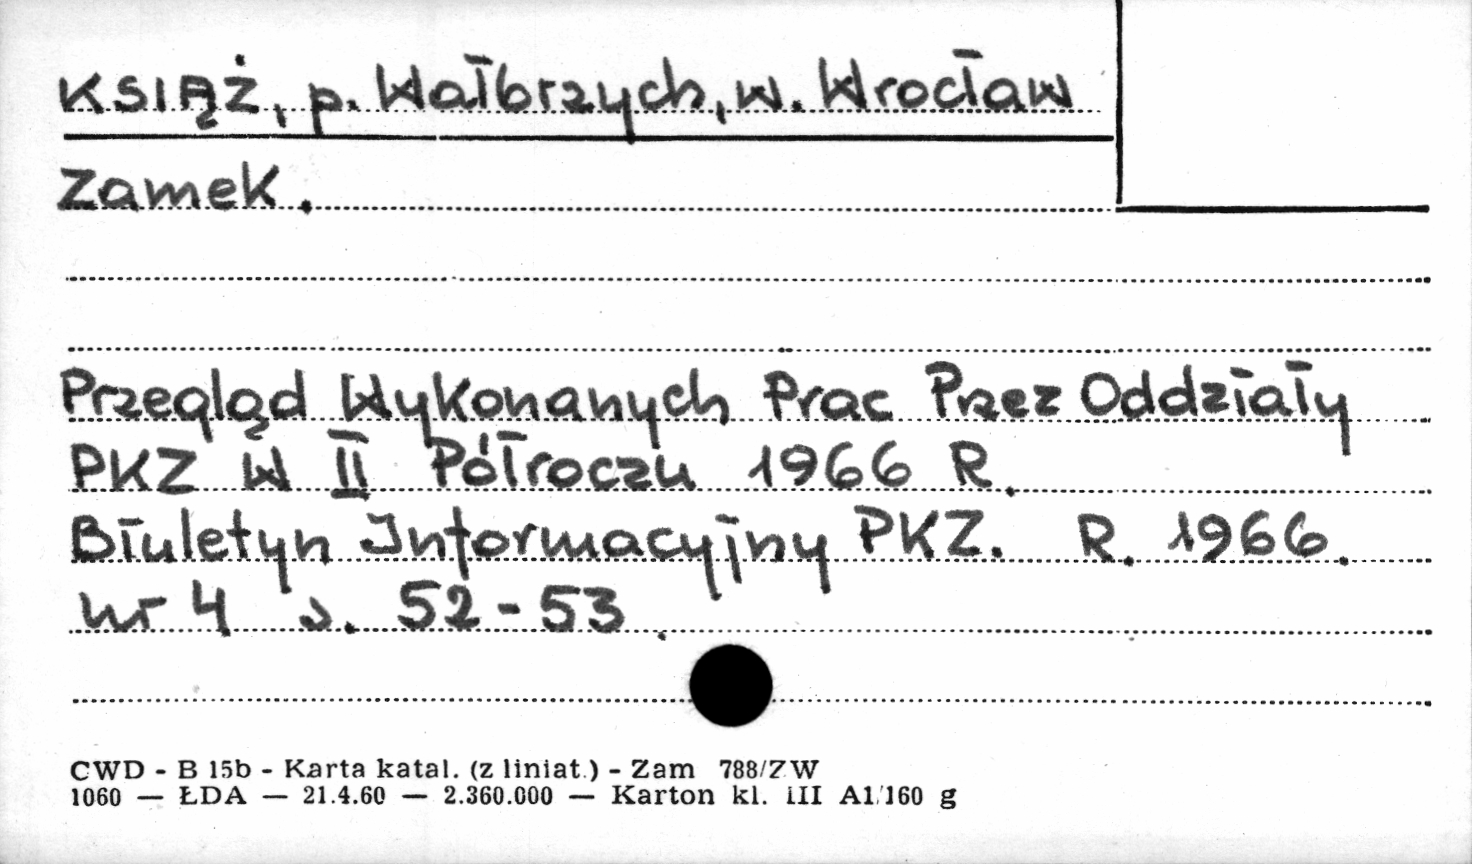 KSIĄŻ, p. Wałbrzych, w. Wrocław
Zamek.
Przegląd Wykonanych Prac Przez Oddziały
PKZ W II Półroczu 1966 R.
Biuletyn Informacyjny PKZ. R. 1966.
nr 4 s. 52-53.
CWD - B 15b - Karta katal. (z liniat.) - Zam 788/ZW
1060 — ŁDA — 21.4.60 — 2.360.000 — Karton kl. III A1/160 g